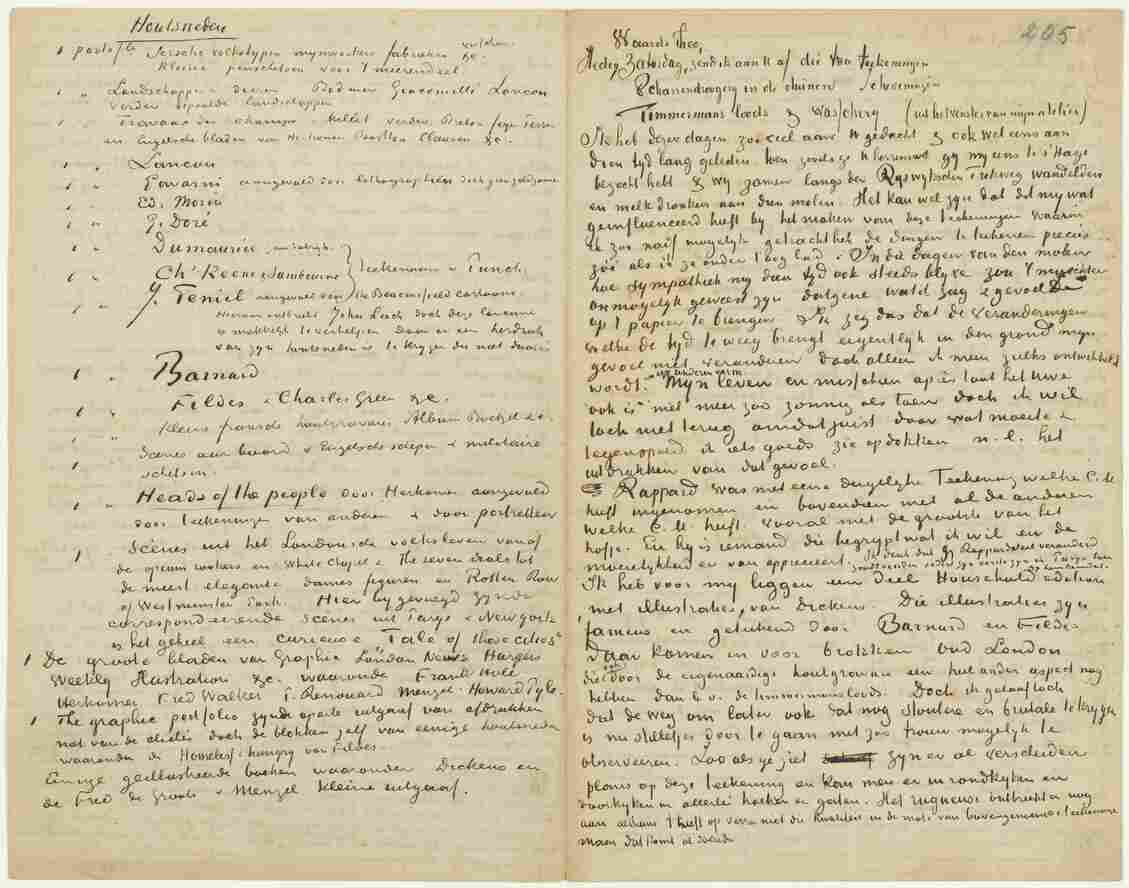 Houtsneden
1 portefle Iersche volkstypen mynwerkers fabrieken visschers &c.
kleine penschetsen voor 't meerendeel
1 " Landschappen & dieren Bodmer Giacomelli Lançon
verder bepaalde landschappen
1 " Travaux des champs Millet verder Breton Feyen Perrin
en Engelsche bladen van Herkomer Boughton Clausen &c.
1 " Lançon
1 " Gavarni aangevuld door lithographieën doch geen zeldzame
1 " Ed. Morin
1 " G. Doré
1 " Dumaurier
1 " Ch' Keene & Sambourne } teekenaars v. Punch
1 " J. Teniel aangevuld door de Beaconsfield cartoons
Hieraan ontbreekt John Leech doch deze lacune
is makkelyk te verhelpen daar er een herdruk
van zyn houtsneden is te krygen die niet duur is
1 " Barnard
1 " Fildes & Charles Green &c.
1 " kleine fransche houtgravures Album Boetzel &c.
1 " Scènes aan boord v. Engelsche schepen & militaire
schetsen.
1 " Heads of the people door Herkomer aangevuld
door teekeningen van anderen & door portretten
1 " Scènes uit het Londonsche volksleven vanaf
de opium smokers en White Chapel & the seven dials tot
de meest elegante dames figuren en Rotten Row
of Westminster Park. Hier bygevoegd zynde
correspondeerende scènes uit Parys & New york
is het geheel een curieuse "Tale of those cities"
1 " De groote bladen van Graphic London News Harpers
Weekly Illustration &c. waaronder Frank Holl
Herkomer Fred Walker P. Renouard Menzel Howard Pyle.
1 " The graphic portfolio zynde aparte uitgaaf van afdrukken
niet van de clichés doch de blokken zelf van eenige houtsneden
waaronder de Homeless & hungry van Fildes.
Eenige geillustreerde boeken waaronder Dickens en
de Fred de Groote v Menzel kleine uitgaaf.
205
Waarde Theo,
Heden, Zaterdag, zend ik aan U af die twee teekeningen
Scharrendrogery in de duinen Scheveningen
Timmermansloods & wasschery (uit het venster van myn atelier)
Ik heb dezer dagen zoo veel aan U gedacht & ook wel eens aan
dien tyd lang geleden toen zooals ge U herinnert gy my eens te 's Hage
bezocht hebt & wy zamen langs den Ryswykschen trekweg wandelden
en melk dronken aan dien molen. Het kan wel zyn dat dit my wat
geinfluenceerd heeft by het maken van deze teekeningen waarin
ik zoo naif mogelyk getracht heb de dingen te teekenen precies
zóó als ik ze onder 't oog had. In die dagen van den molen
hoe sympathiek my dien tyd ook steeds blyve zou 't my echter
onmogelyk geweest zyn datgene wat ik zag & gevoelde
op 't papier te brengen. Ik zeg dus dat de veranderingen
welke de tyd te weeg brengt eigentlyk in den grond myn
gevoel niet veranderen doch alleen ik meen zulks ontwikkeld
wordt in anderen vorm. Myn leven en misschien apres tout het Uwe
ook is niet meer zoo zonnig als toen doch ik wil
toch niet terug omdat juist door wat moeite &
tegenspoed ik iets goeds zie opdokken n.l. het
uitdrukken van dat gevoel.
Rappard was met eene dergelyke teekening welke C. M.
heeft ingenomen en bovendien met al de anderen
welke C. M. heeft. Vooral met de grootste van het
hofje. En hy is iemand die begrypt wat ik wil en de
moeielykheid er van apprecieert. Ik denk dat gy Rappard veel veranderd
Ik heb voor my liggen een deel Household edition
met illustraties, van Dickens. Die illustraties zyn
fameus en geteekend door Barnard en Fildes
Daar komen in voor brokken Oud London
die door de eigenaardige houtgravure een heel ander aspect nog
hebben dan b.v. de timmermansloods. Doch ik geloof toch
dat de weg om later ook dat nog stoutere en brutale te krygen
is nu stilletjes door te gaan met zoo trouw mogelyk te
observeeren. Zooals ge ziet zyn er al verscheiden
plans op deze teekening en kan men er in rondkyken en
doorkyken in allerlei hoeken en gaten. Het rugueuse ontbreekt er nog
aan althans 't heeft op verre na niet die kwaliteit in de mate van bovengenoemde teekeningen
maar dat komt al doende